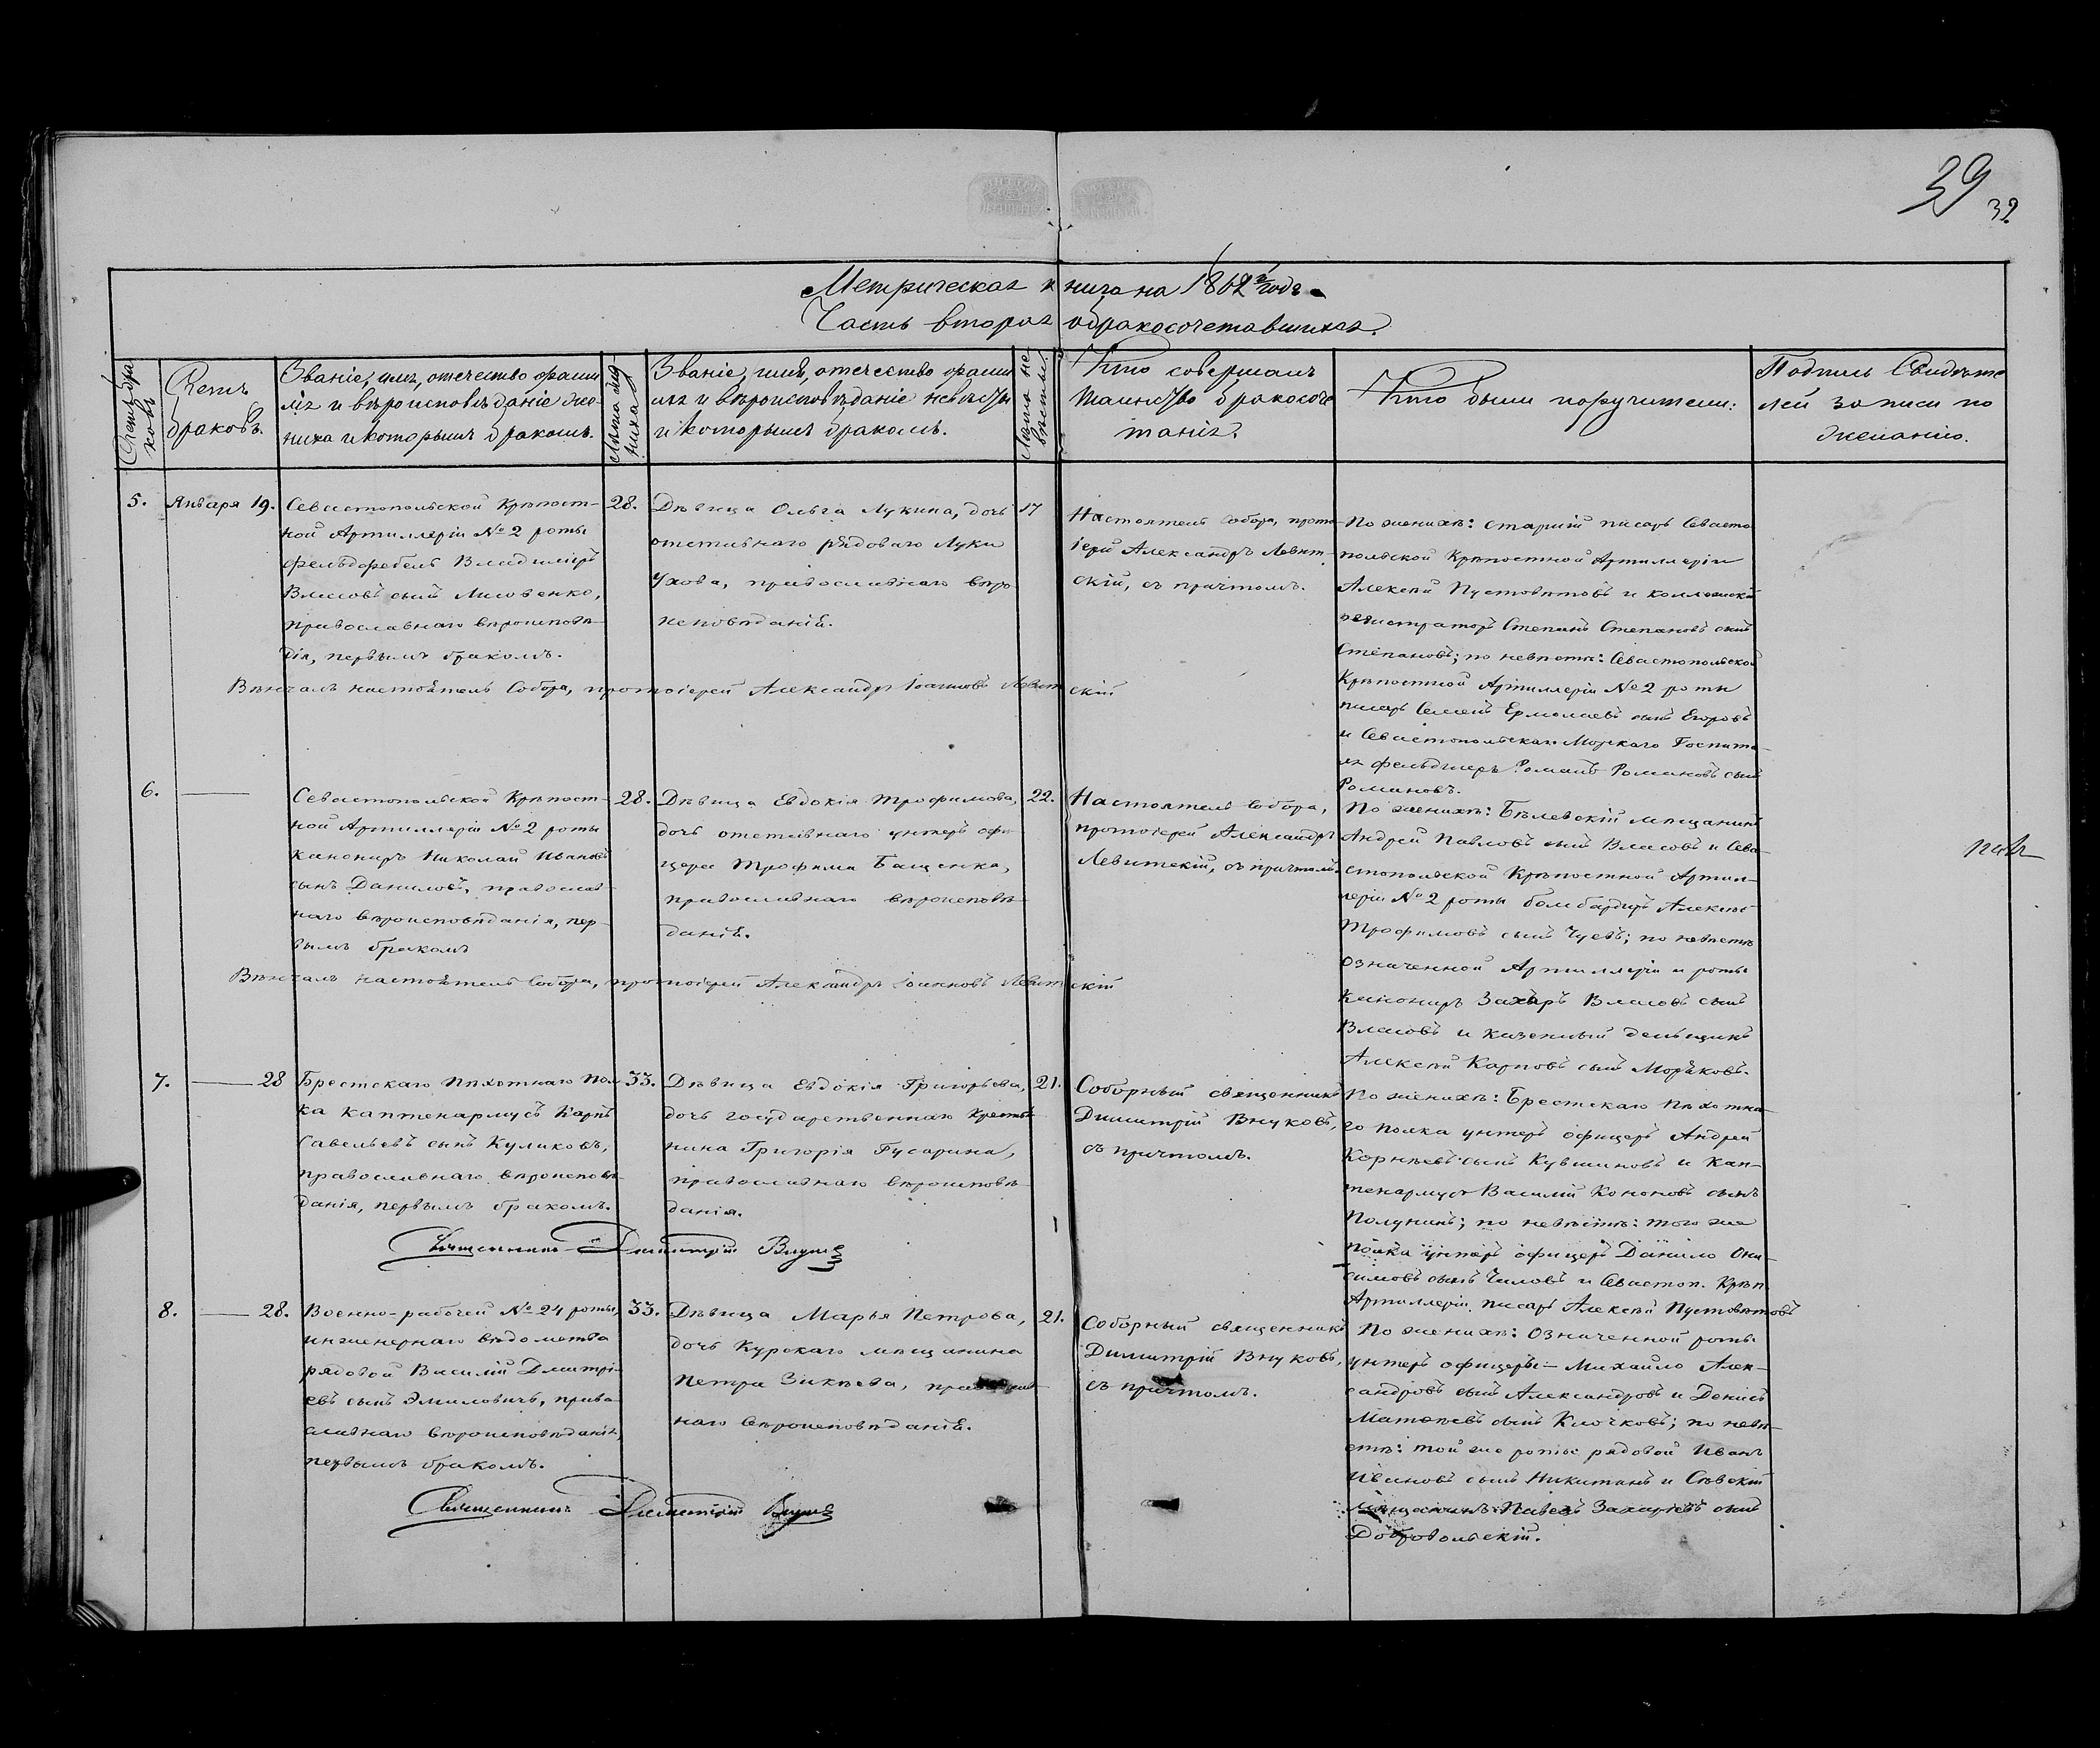 39
39.
Метрическая книга на 1862й годъ.
Часть вторая о бракосочетавшихся.
Счетъ бра-
ковъ
Звание, имя, отечество фами
лія и вѣроисповѣданіе же-
ниха и которымъ бракомъ.
браковъ.
Лѣта же-
ниха
Званіе, имя, отечество фами
лія и вѣроисповѣданіе невѣсты
и которымъ бракомъ.
Лѣта не-
вѣсты.
Кто совершалъ
таинство бракосоче
танія.
Кто были поручители:
Подпись Свидѣте
лей записи по
желанію.
5.
Января 19.
Севастопольской Крѣпост-
ной Артиллеріи № 2 роты
фельдфебель Владиміръ
Власовъ сынъ Лисовенко,
православнаго вѣроисповѣ-
дія, первымъ бракомъ.
28.
Дѣвица Ольга Лукина, дочь
отставнаго рядоваго Луки
Ухова, православнаго вѣро-
исповѣданія.
17
Настоятель Собора, прото-
іерей Александръ Левит-
скій, съ причтомъ.
По женихѣ: старшій писарь Севасто
польской Крѣпостной Артиллеріи
Алексѣй Пустовѣтовъ и коллежскій
регистраторъ Степанъ Степановъ сынъ
Степановъ; по невѣстѣ: Севастопольской
Крѣпостной Артиллеріи № 2 роты
писарь Семенъ Ермолаевъ сынъ Егоровъ
и Севастопольскаго Морскаго Госпита-
ля фельдшеръ Романъ Романовъ сынъ
Романовъ.
Вѣнчалъ настоятель Собора, протоіерей Александръ Іоанновъ Левитскій
6.
Севастопольской Крѣпост-
ной Артиллеріи № 2 роты
канониръ Николай Ивановъ
сынъ Даниловъ, православ-
наго вѣроисповѣданія, пер-
вымъ бракомъ
28.
Дѣвица Евдокія Трофимова,
дочь отставнаго унтеръ офи-
цера Трофима Бащенка,
православнаго вѣроисповѣ-
данія.
22.
Настоятель Собора,
протоіерей Александръ
Левитскій, съ причтомъ.
По женихѣ: Бѣлевскій мѣщанинъ
Андрей Павловъ сынъ Власовъ и Сева-
стопольской Крѣпостной Артил-
леріи № 2 роты бомбардиръ Алексѣй
Трофимовъ сынъ Чуевъ; по невѣстѣ
означенной Артиллеріи и роты
канониръ Захаръ Власовъ сынъ
Власовъ и казенный деньщикъ
Алексѣй Карповъ сынъ Моряковъ.
Вѣнчалъ настоятель Собора, протоіерей Александръ Іоанновъ Левитскій
7.
28
Брестскаго Пѣхотнаго Пол-
ка каптенармусъ Карпъ
Савельевъ сынъ Куликовъ,
православнаго вѣроисповѣ-
данія, первымъ бракомъ.
33.
Дѣвица Евдокія Григорьева,
дочь государственнаго крестья-
нина Григорія Гусарина,
православнаго вѣроисповѣ-
данія.
21.
Соборный священникъ
Димитрій Внуковъ,
съ причтомъ.
По женихѣ: Брестскаго Пѣхотна-
го полка унтеръ офицеръ Андрей
Корнѣевъ сынъ Кувшиновъ и Кап-
тенармусъ Василій Кононовъ сынъ
Полунинъ; по невѣстѣ: того же
полка унтеръ офицеръ Данило Они-
симовъ сынъ Чиловъ и Севастоп. Крѣп.
Артиллеріи писарь Алексѣй Пустовѣтовъ
Священникъ Димитрій Внуковъ
8.
28.
Военно-рабочей № 24 роты,
инженернаго вѣдомства
рядовой Василій Дмитрі-
евъ сынъ Эмиловичъ, право-
славнаго вѣроисповѣданія,
первымъ бракомъ.
33.
Дѣвица Марья Петрова,
дочь Курскаго мѣщанина
Петра Зикѣева, православ-
наго вѣроисповѣданія.
21.
Соборный священникъ
Димитрій Внуковъ,
съ причтомъ.
По женихѣ: означенной роты
унтеръ офицеры - Михайло Алек-
сандровъ сынъ Александровъ и Денисъ
Матвѣевъ сынъ Клочковъ; по невѣ-
стѣ: той же роты рядовой Иванъ
Ивановъ сынъ Никитинъ и Сѣвскій
мѣщанинъ Павелъ Захаріевъ сынъ
Добровольскій.
Священникъ Димитрій Внуковъ